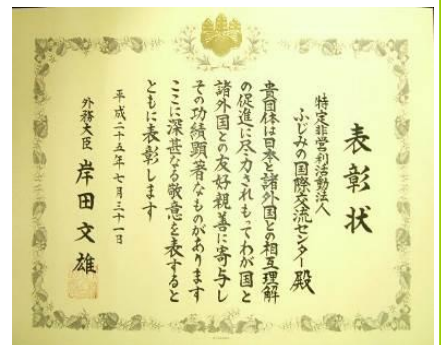 表彰状
特定非営利活動法人
ふじみの国際交流センター 殿
貴団体は日本と諸外国との相互理解
の促進に尽力されもってわが国と
諸外国との友好親善に寄与し
その功績顕著なものがあります
ここに深甚なる敬意を表すると
ともに表彰します
平成二十五年七月三十一日
外務大臣 岸田文雄